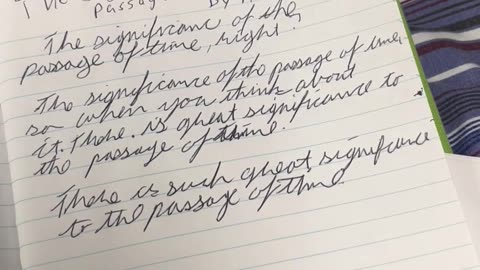 The
passage By
The significanc of the
passage of time, right.
The significance of the passage of time,
so when you think about
it. There. is great significance to
the passage of time.
There is such great significance
to the passage of time.